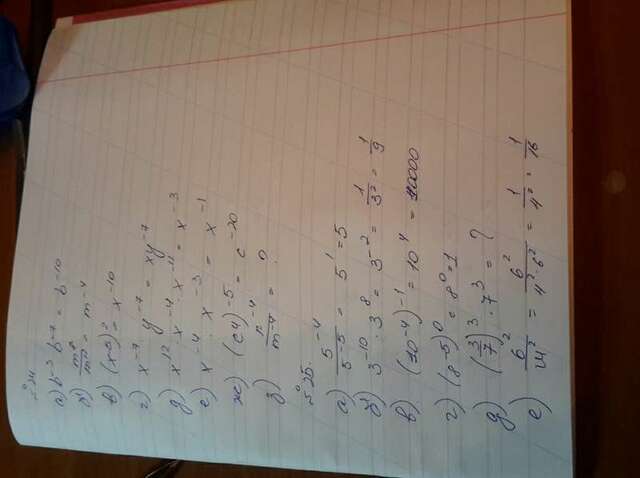 №24
а) b⁻³ b⁻⁷ = b⁻¹⁰
в) (x⁻⁵)² = x⁻¹⁰
г) x⁻⁷ y⁻⁷ = xy⁻⁷
д) x¹² x⁻⁴ x⁻¹¹ = x⁻³
е) x⁻⁴ x⁻³ = x⁻¹
ж) (c4)⁻⁵ = c⁻²⁰
з) n⁻⁴/m⁻⁴ = ?
№25.
а) 5⁻⁴/5⁻⁵ = 5¹ = 5
б) 3⁻¹⁰ · 3⁸ = 3⁻² = 1/3² = 1/9
в) (10⁻⁴)⁻¹ = 10⁴ = 10000
г) (8⁻⁵)⁰ = 8⁰ = 1
д) (3/7)³ · 7³ = ?
е) 6²/24² = 6²/4²·6² = 1/4² = 1/16